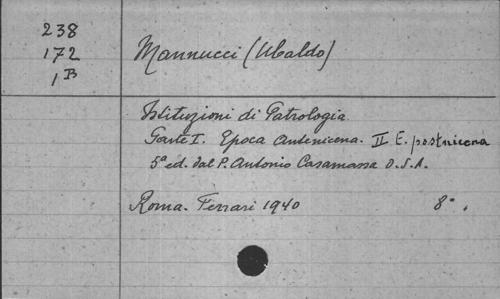 238
172
1B
Mannucci (Ubaldo)
Istituzioni di Patrologia
Parte I. Epoca Antenicena. II E. postnicena
5ª ed. dal P. Antonio Casamassa O.S.A.
Roma. Ferrari 1940 8º.